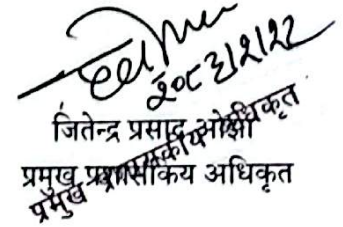 २०८३/२/२२
जितेन्द्र प्रसाद ओझा
प्रमुख प्रशासकिय अधिकृत
प्रमुख प्रशासकीय अधिकृत